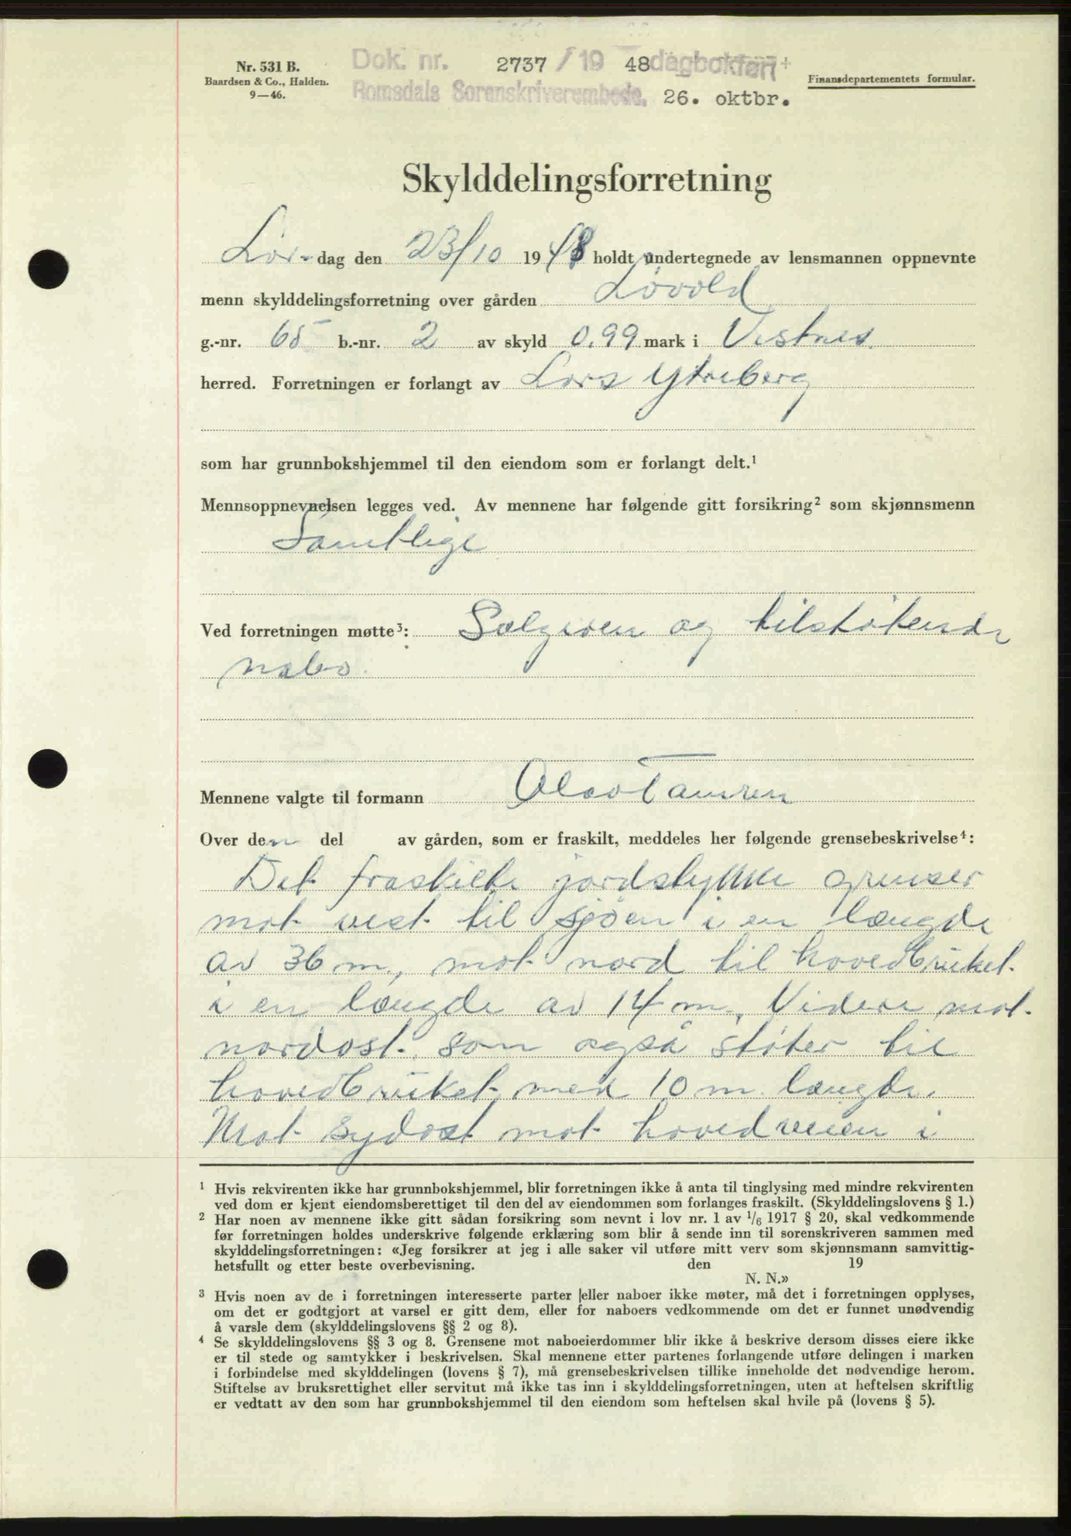 Nr. 531 B.
Baardsen & Co., Halden.
9—46.
Dok. nr. 2737 / 19 48 dagbokført
Romsdals Sorenskriverembede. 26. oktbr.
Finansdepartementets formular.
Skylddelingsforretning
Lør- dag den 23/10 1948 holdt undertegnede av lensmannen oppnevnte
menn skylddelingsforretning over gården Løvold
g.-nr. 65 b.-nr. 2 av skyld 0.99 mark i Vestnes
herred. Forretningen er forlangt av Lars Ytreberg
som har grunnbokshjemmel til den eiendom som er forlangt delt.¹
Mennsoppnevnelsen legges ved. Av mennene har følgende gitt forsikring² som skjønnsmenn
Samtlige
Ved forretningen møtte³: Selgeren og tilstøtende
nabo.
Mennene valgte til formann Olav
Over den del av gården, som er fraskilt, meddeles her følgende grensebeskrivelse⁴:
Det fraskilte jordstykke grenser
mot vest til sjøen i en længde
av 36 m., mot nord til hovedbruket
i en længde av 14 m. Videre mot
nordost. som også støter til
hovedbruket med 10 m. længde.
Mot sydost mot hovedveien i
¹ Hvis rekvirenten ikke har grunnbokshjemmel, blir forretningen ikke å anta til tinglysing med mindre rekvirenten
ved dom er kjent eiendomsberettiget til den del av eiendommen som forlanges fraskilt. (Skylddelingslovens § 1.)
² Har noen av mennene ikke gitt sådan forsikring som nevnt i lov nr. 1 av 1/6 1917 § 20, skal vedkommende
før forretningen holdes underskrive følgende erklæring som blir å sende inn til sorenskriveren sammen med
skylddelingsforretningen: «Jeg forsikrer at jeg i alle saker vil utføre mitt verv som skjønnsmann samvittig-
hetsfullt og etter beste overbevisning. den 19
N. N.»
³ Hvis noen av de i forretningen interesserte parter eller naboer ikke møter, må det i forretningen opplyses,
om det er godtgjort at varsel er gitt dem, eller for naboers vedkommende om det er funnet unødvendig
å varsle dem (skylddelingslovens §§ 2 og 8).
⁴ Se skylddelingslovens §§ 3 og 8. Grensene mot naboeierdommer blir ikke å beskrive dersom disses eiere ikke
er til stede og samtykker i beskrivelsen. Skal mennene etter partenes forlangende utføre delingen i marken
i forbindelse med skylddelingen (lovens § 7), må grensebeskrivelsen tillike inneholde det nødvendige herom.
Stiftelse av bruksrettighet eller servitut må ikke tas inn i skylddelingsforretningen, uten at heftelsen skriftlig
er vedtatt av den som har grunnbokshjemmel til den eiendom som heftelsen skal hvile på (lovens § 5).